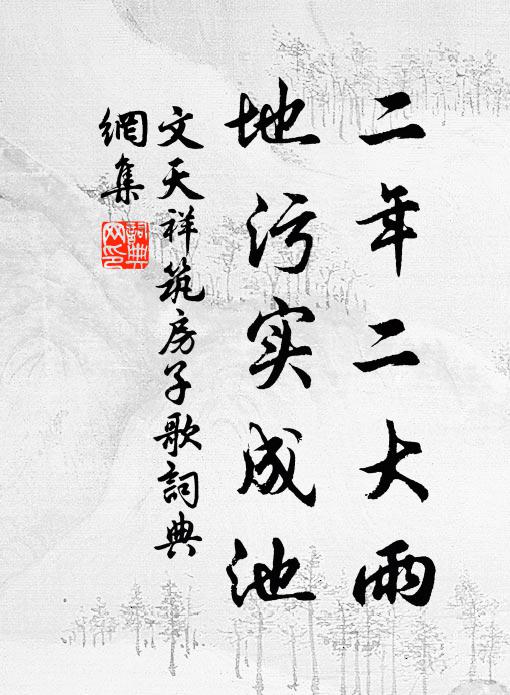 二年二大雨
地污实成池
文天祥筑房子歌詞典
網集
詞典网印